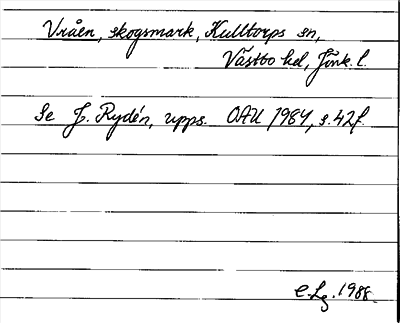 Vråen, skogsmark, Kulltorps sn,
Västbo hd, Jönk. l.
Se J. Rydén, upps. OAU 1984, s. 42f.
E. Lg. 1988.